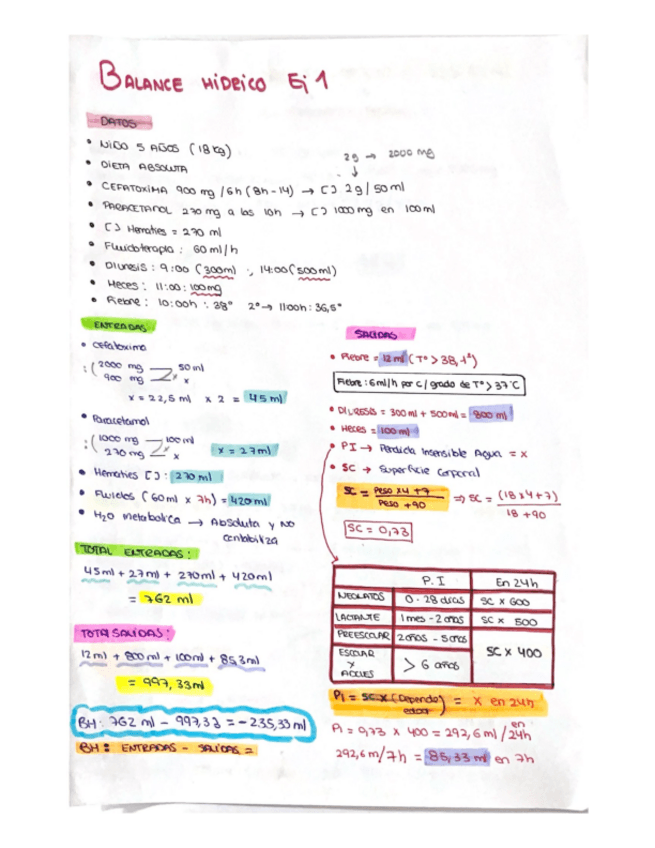 BALANCE HÍDRICO Ej 1
DATOS
• NIÑO 5 AÑOS (18 kg)
• DIETA ABSOLUTA
2g → 2000 mg
↓
• CEFATOXIMA 900 mg / 6h (8h - 14) → [ ] 2g / 50 ml
• PARACETAMOL 270 mg a las 10h → [ ] 1000 mg en 100 ml
• [ ] Hematies = 270 ml
• Fluidoterapia: 60 ml/h
• Diuresis: 9:00 (300 ml) ; 14:00 (500 ml)
• Heces: 11:00: 100 mg
• Fiebre: 10:00h : 38° 2° → 11:00h: 36,5°
ENTRADAS
• Cefatoxima
: ( 2000 mg — 50 ml
900 mg — x
x = 22,5 ml x 2 = 45 ml
• Paracetamol
: ( 1000 mg — 100 ml
270 mg — x x = 27 ml
• Hematies [ ]: 270 ml
• Fluidos (60 ml x 7h) = 420 ml
• H2O metabolica → Absoluta y NO
contabiliza
TOTAL ENTRADAS:
45 ml + 27 ml + 270 ml + 420 ml
= 762 ml
TOTAL SALIDAS:
12 ml + 800 ml + 100 ml + 85,3 ml
= 997,33 ml
BH: 762 ml - 997,33 = -235,33 ml
BH: ENTRADAS - SALIDAS =
SALIDAS
• Fiebre = 12 ml (Tª > 38,
Fiebre: 6 ml/h por c/ grado de Tª > 37°C
• DIURESIS = 300 ml + 500 ml = 800 ml
• HECES = 100 ml
• PI → Perdida Insensible Agua = x
• SC → Superficie Corporal
SC = Peso x 4 + 7 / Peso + 90 ⇒ SC = (18 x 4 + 7) / 18 + 90
SC = 0,73
P.I En 24h
NEONATOS 0 - 28 dias SC x 600
LACTANTE 1 mes - 2 años SC x 500
PREESCOLAR 2 años - 5 años SC x 400
ESCOLAR Y > 6 años
PI = SC x (Depende edad) = x en 24h
PI = 0,73 x 400 = 292,6 ml / en 24h
292,6 m/7h = 85,33 ml en 7h